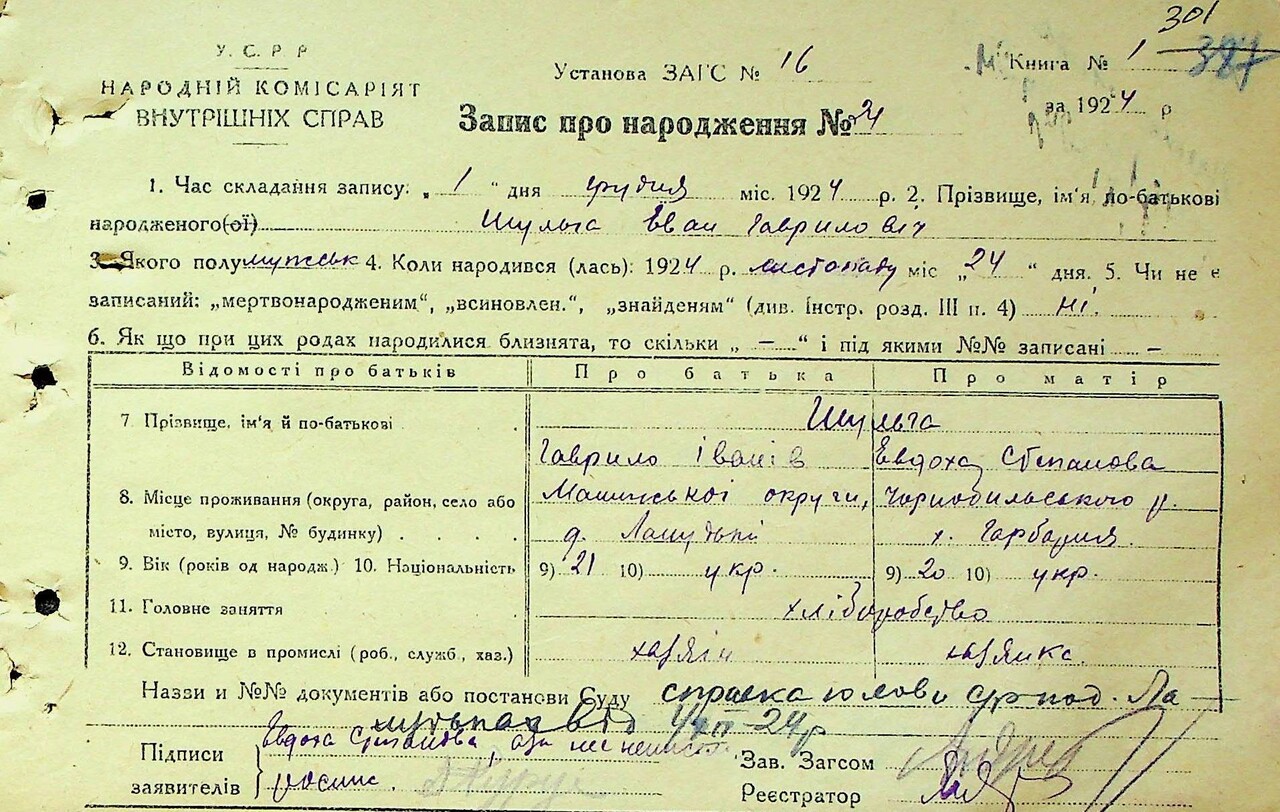 301
У.С.Р.Р
Установа ЗАГС № 16 Книга № 1 327
НАРОДНІЙ КОМІСАРІЯТ за 1924 р
ВНУТРІШНІХ СПРАВ Запис про народження № 21
1. Час складання запису: „1" дня грудня міс. 1924 р. 2. Прізвище, ім'я, по-батькові
народженого(ої) Шульга Еван Гаврилович
3. Якого полу мужськ 4. Коли народився (лась): 1924 р. листопаду міс „24" дня. 5. Чи не є
записаний: „мертвонародженим", „всиновлен.", „знайденям" (див. інстр. розд. III п. 4) ні.
6. Як що при цих родах народилися близнята, то скільки „ — " і під якими №№ записані —
Відомості про батьків Про батька Про матір
7 Прізвище, ім'я й по-батькові Шульга
Гаврило Іванів Евдоха Степанова
8. Місце проживання (округа, район, село або округи, Чорнобильського р.
місто, вулиця, № будинку) х.
9. Вік (років од народж.) 10. Національність 9) 21 10) укр. 9) 20 10) укр.
11. Головне заняття хліборобство
12. Становище в промислі (роб., служб., хаз.) хазяін хазяйка
Назви и №№ документів або постанови Суду справка голови
від 24 р
Підписи Евдоха Степанова,
заявителів
Зав. Загсом
Реєстратор